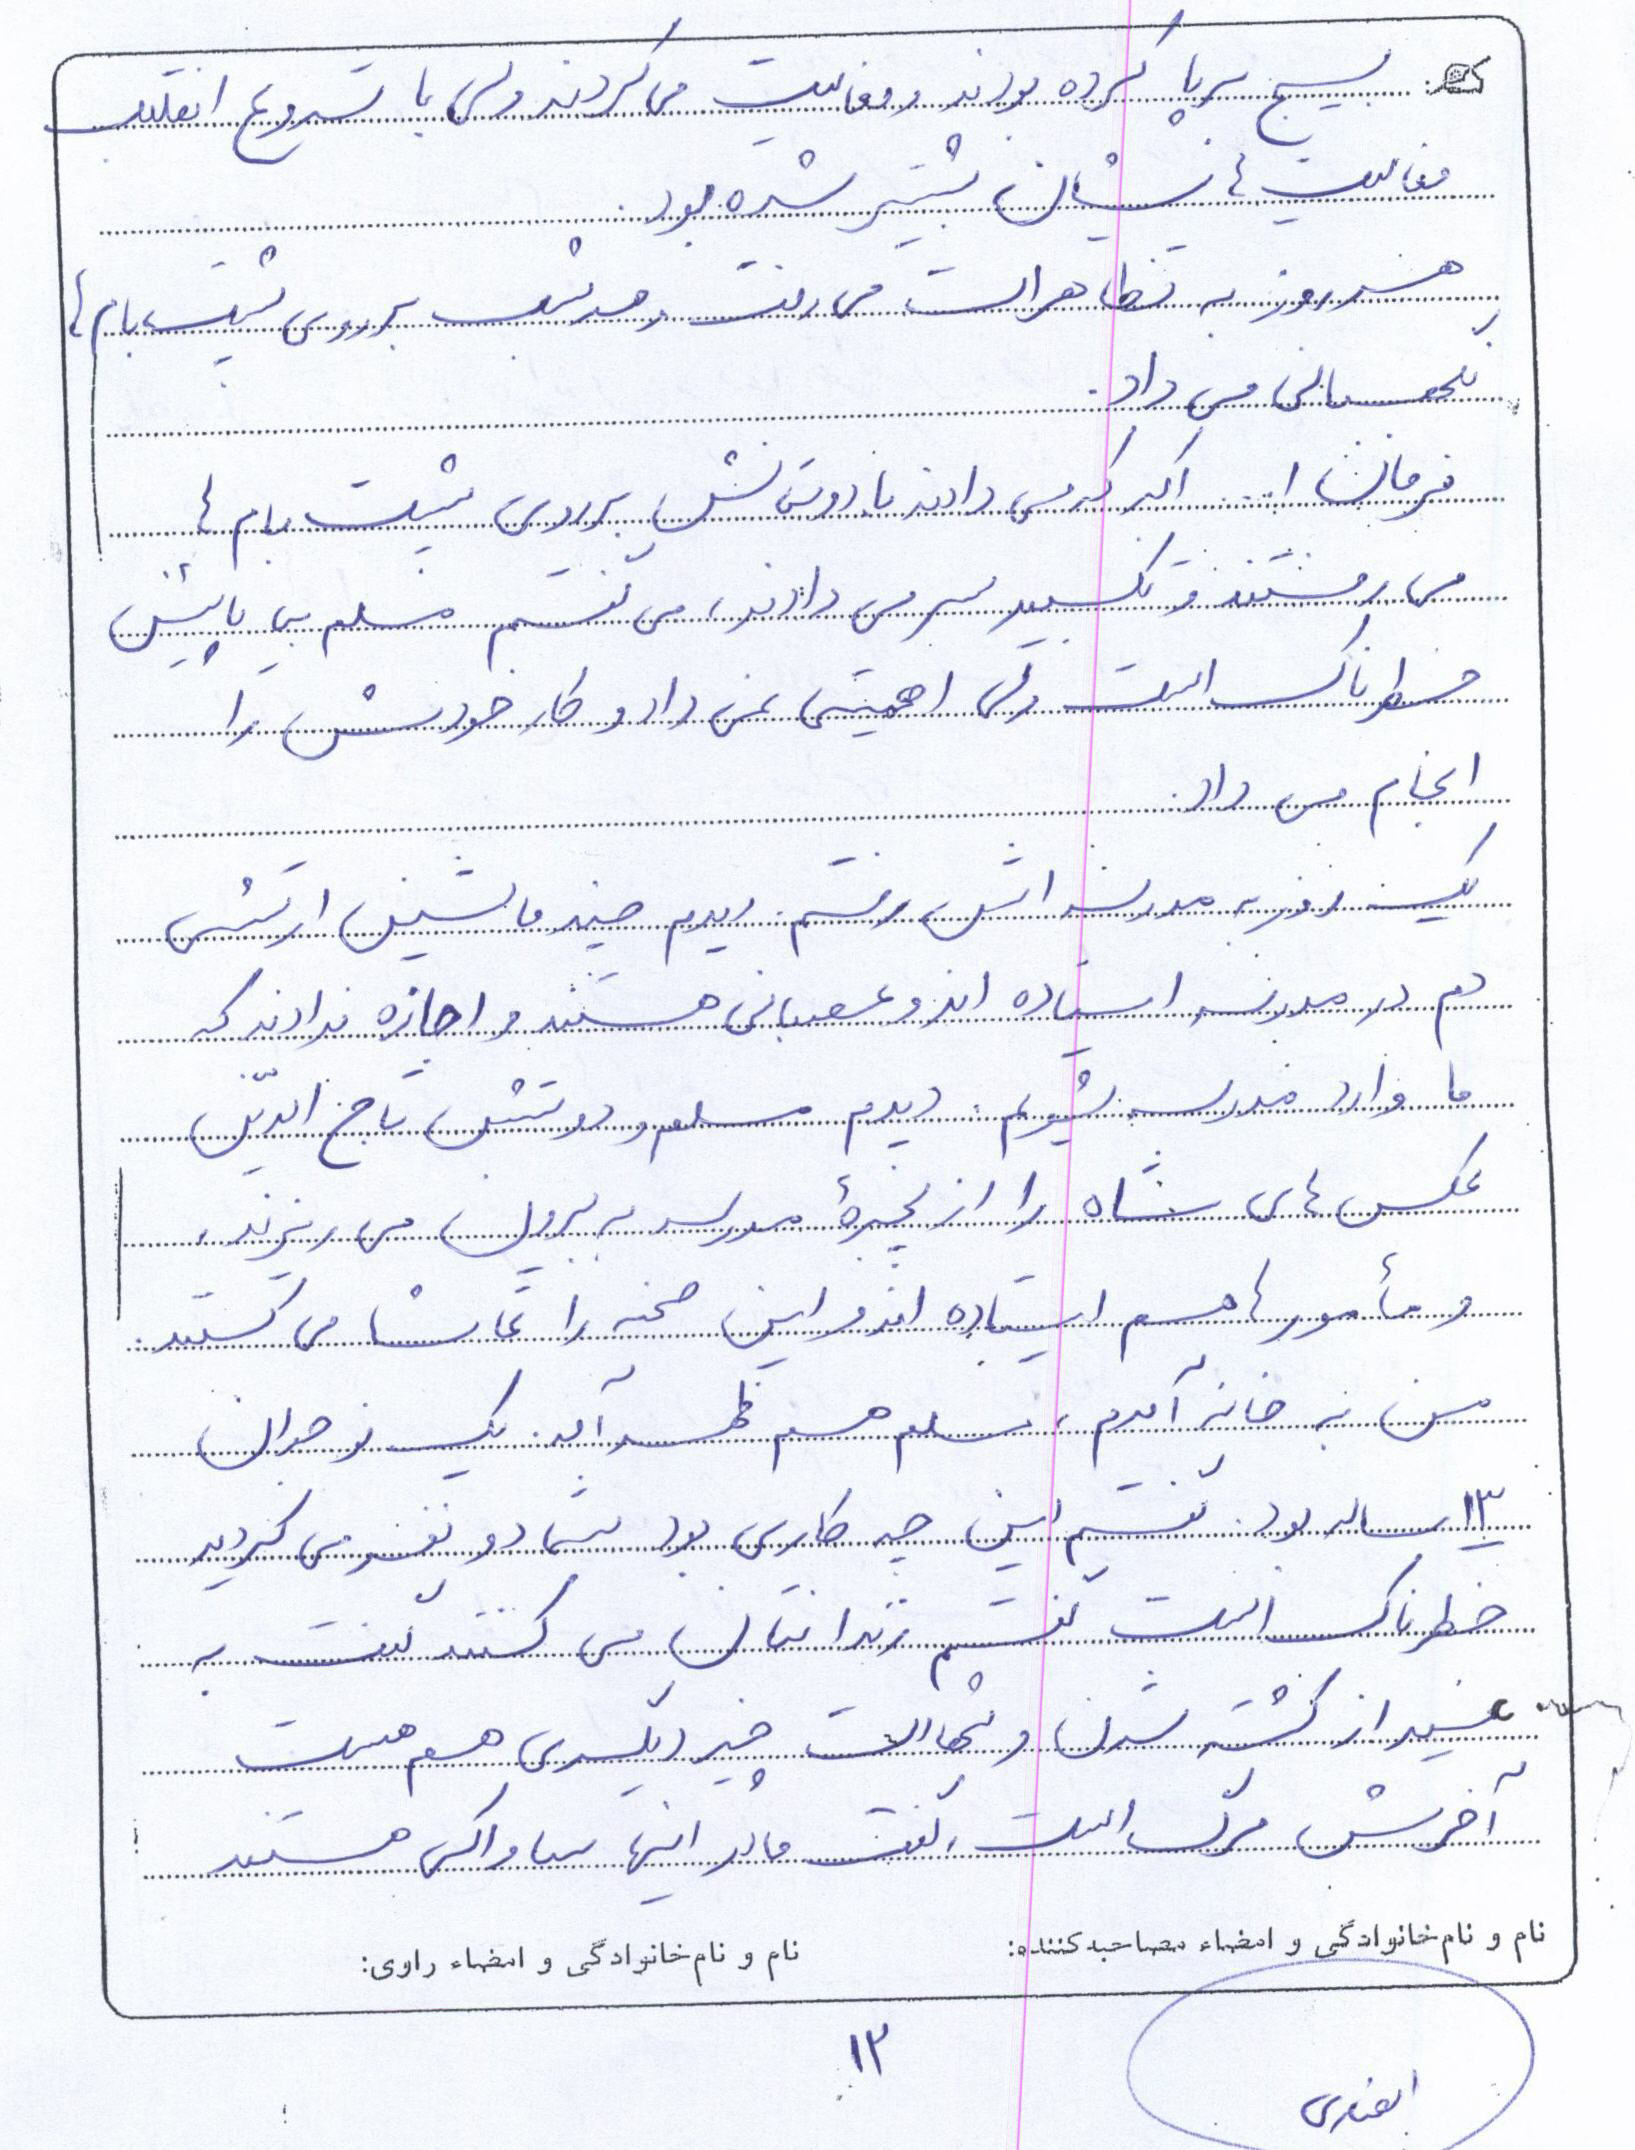 بسیج برپا کرده بودند و فعالیت می کردند ولی با شروع انقلاب
فعالیت هایشان بیشتر شده بود.
هر روز به تظاهرات می رفت و هر شب بر روی پشت بام ها
نگهبانی می داد.
فرمان ا... اکبر که می دادند با دوستانش بر روی پشت بام ها
می رفتند و تکبیر سر می دادند، می گفتم مسلم بیا پائین
خطرناک است ولی اهمیتی نمی داد و کار خودش را
انجام می داد.
یک روز به مدرسه اش رفتم. دیدم چند ماشین ارتشی
دم در مدرسه ایستاده اند و عصبانی هستند و اجازه ندادند که
ما وارد مدرسه شویم. دیدم مسلم و دوستش تاج الدّین
عکس های شاه را از پنجرۀ مدرسه به بیرون می ریزند،
و مأمورها هم ایستاده اند و این صحنه را تماشا می کنند.
من به خانه آمدم، مسلم هم ظهر آمد. یک نوجوان
۱۳ ساله بود. گفتم این چه کاری بود شما دو نفر می کردید
خطرناک است گفتم زندانتان می کنند گفت به
غیر از کشته شدن و شهادت چیز دیگری هم هست
آخرش مرگ است، گفت مادر اینها ساواکی هستند
نام و نام خانوادگی و امضاء مصاحبه کننده:
نام و نام خانوادگی و امضاء راوی:
۱۲